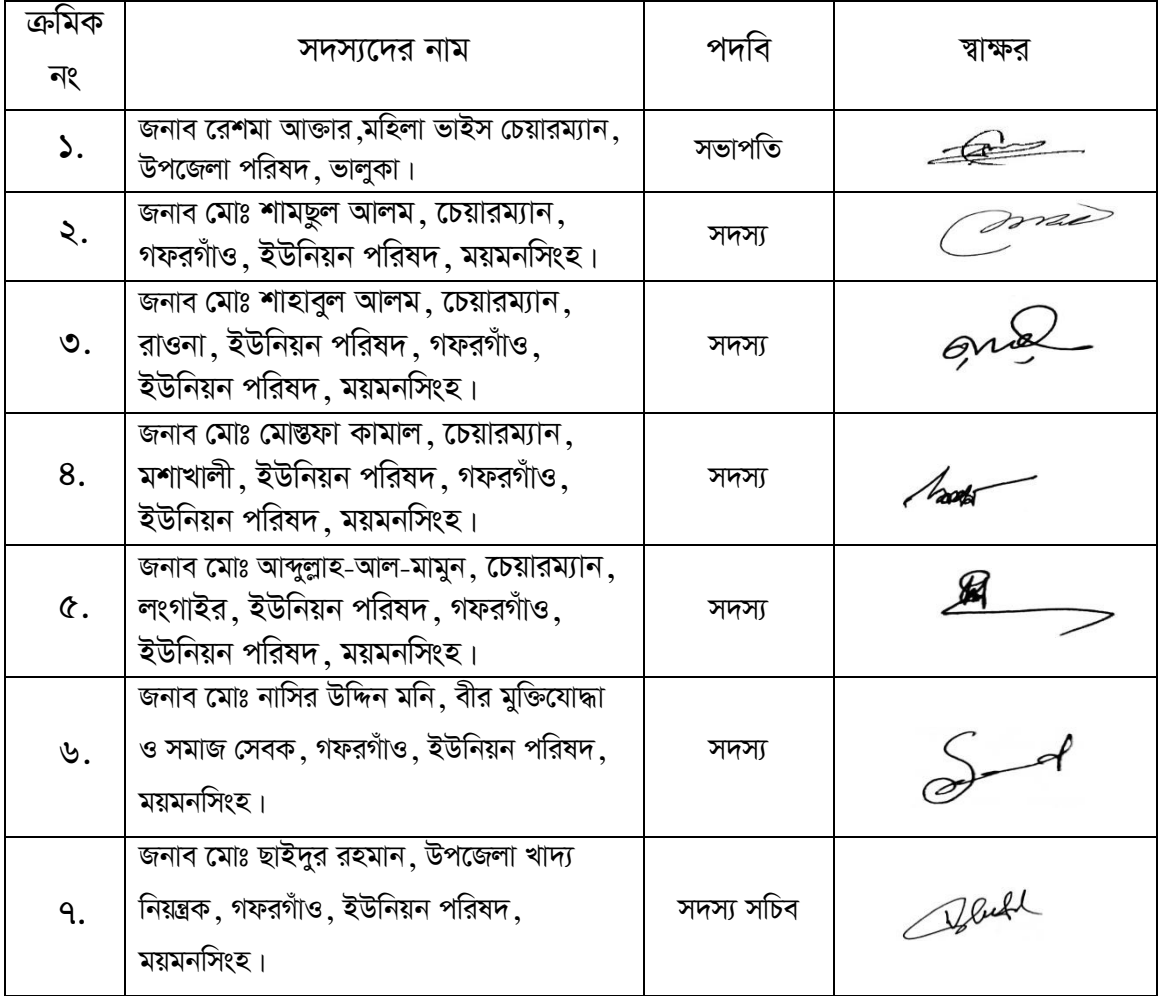 ক্রমিক
নং
সদস্যদের নাম
পদবি
স্বাক্ষর
১.
জনাব রেশমা আক্তার,মহিলা ভাইস চেয়ারম্যান,
উপজেলা পরিষদ, ভালুকা।
সভাপতি
২.
জনাব মোঃ শামছুল আলম, চেয়ারম্যান,
গফরগাঁও, ইউনিয়ন পরিষদ, ময়মনসিংহ।
সদস্য
৩.
জনাব মোঃ শাহাবুল আলম, চেয়ারম্যান,
রাওনা, ইউনিয়ন পরিষদ, গফরগাঁও,
ইউনিয়ন পরিষদ, ময়মনসিংহ।
সদস্য
৪.
জনাব মোঃ মোস্তফা কামাল, চেয়ারম্যান,
মশাখালী, ইউনিয়ন পরিষদ, গফরগাঁও,
ইউনিয়ন পরিষদ, ময়মনসিংহ।
সদস্য
৫.
জনাব মোঃ আব্দুল্লাহ-আল-মামুন, চেয়ারম্যান,
লংগাইর, ইউনিয়ন পরিষদ, গফরগাঁও,
ইউনিয়ন পরিষদ, ময়মনসিংহ।
সদস্য
৬.
জনাব মোঃ নাসির উদ্দিন মনি, বীর মুক্তিযোদ্ধা
ও সমাজ সেবক, গফরগাঁও, ইউনিয়ন পরিষদ,
ময়মনসিংহ।
সদস্য
৭.
জনাব মোঃ ছাইদুর রহমান, উপজেলা খাদ্য
নিয়ন্ত্রক, গফরগাঁও, ইউনিয়ন পরিষদ,
ময়মনসিংহ।
সদস্য সচিব